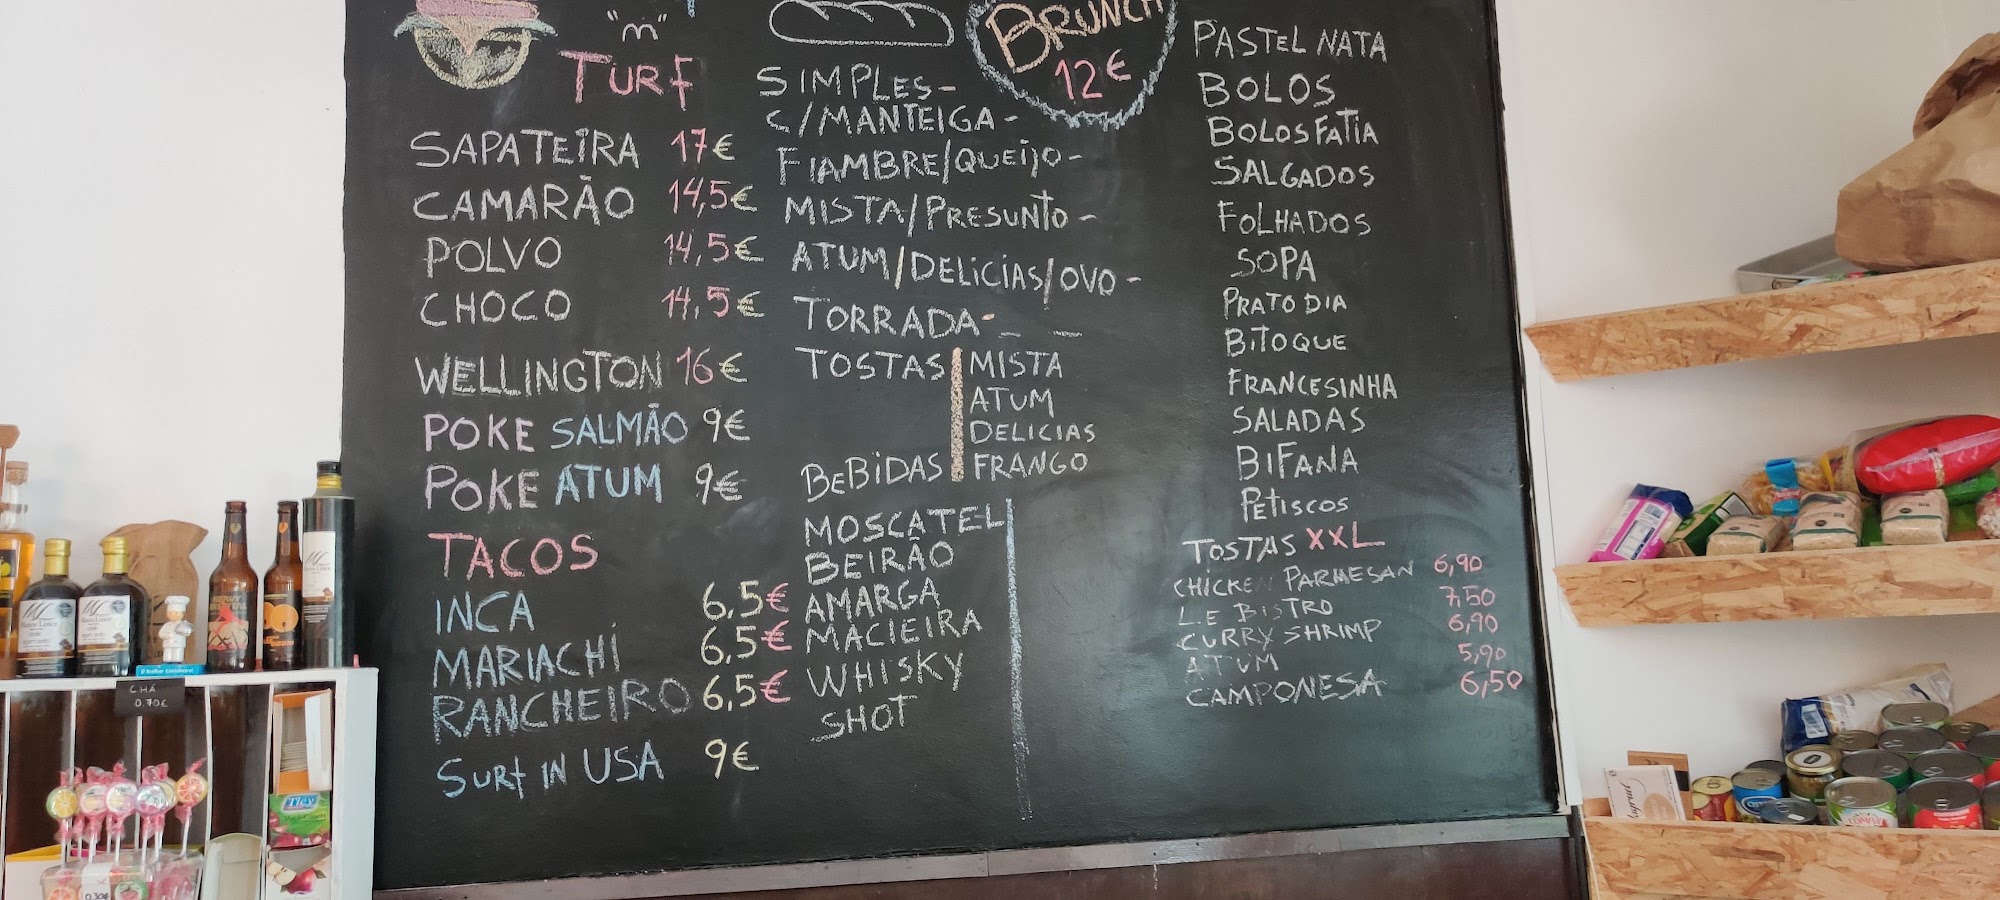 "n"
TURF
SAPATEIRA 17€
CAMARÃO 14,5€
POLVO 14,5€
CHOCO 14,5€
WELLINGTON 16€
POKE SALMÃO 9€
POKE ATUM 9€
TACOS
INCA 6,5€
MARIACHI 6,5€
RANCHEIRO 6,5€
SURF IN USA 9€
BRUNCH
12€
SIMPLES-
C/MANTEIGA-
FIAMBRE/QUEIJO-
MISTA/PRESUNTO-
ATUM/DELICIAS/OVO-
TORRADA-
TOSTAS MISTA
ATUM
DELICIAS
FRANGO
BEBIDAS
MOSCATEL
BEIRÃO
AMARGA
MACIEIRA
WHISKY
SHOT
PASTEL NATA
BOLOS
BOLOS FATIA
SALGADOS
FOLHADOS
SOPA
PRATO DIA
BITOQUE
FRANCESINHA
SALADAS
BIFANA
PETISCOS
TOSTAS XXL
CHICKEN PARMESAN 6,90
L.E BISTRO 7,50
CURRY SHRIMP 6,90
ATUM 5,90
CAMPONESA 6,50
CHÁ
0,70€
0,30€